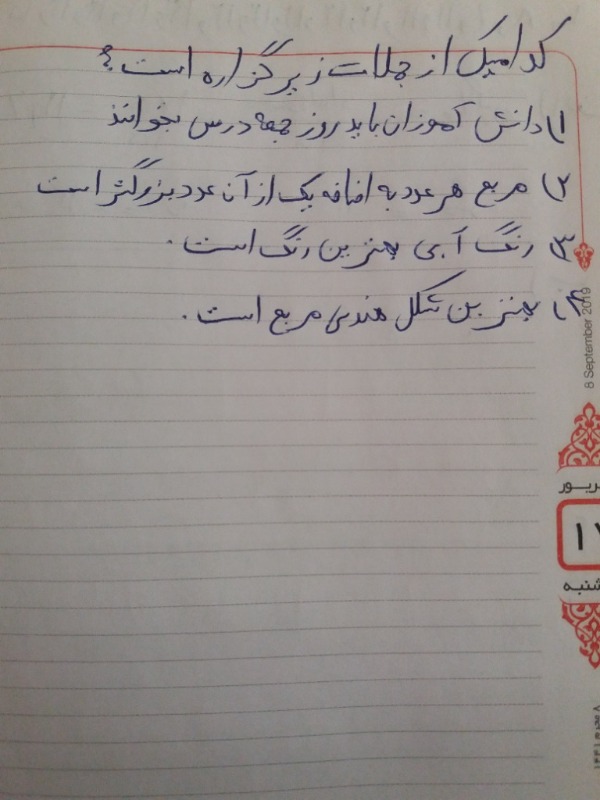 کدامیک از جملات زیر گزاره است؟
۱) دانش آموزان باید روز جمعه درس بخوانند
۲) مربع هر عدد به اضافه یک از آن عدد بزرگتر است
۳) رنگ آبی بهترین رنگ است.
۴) بهترین شکل هندسی مربع است.
8 September 2019
ریور
۱۷
شنبه